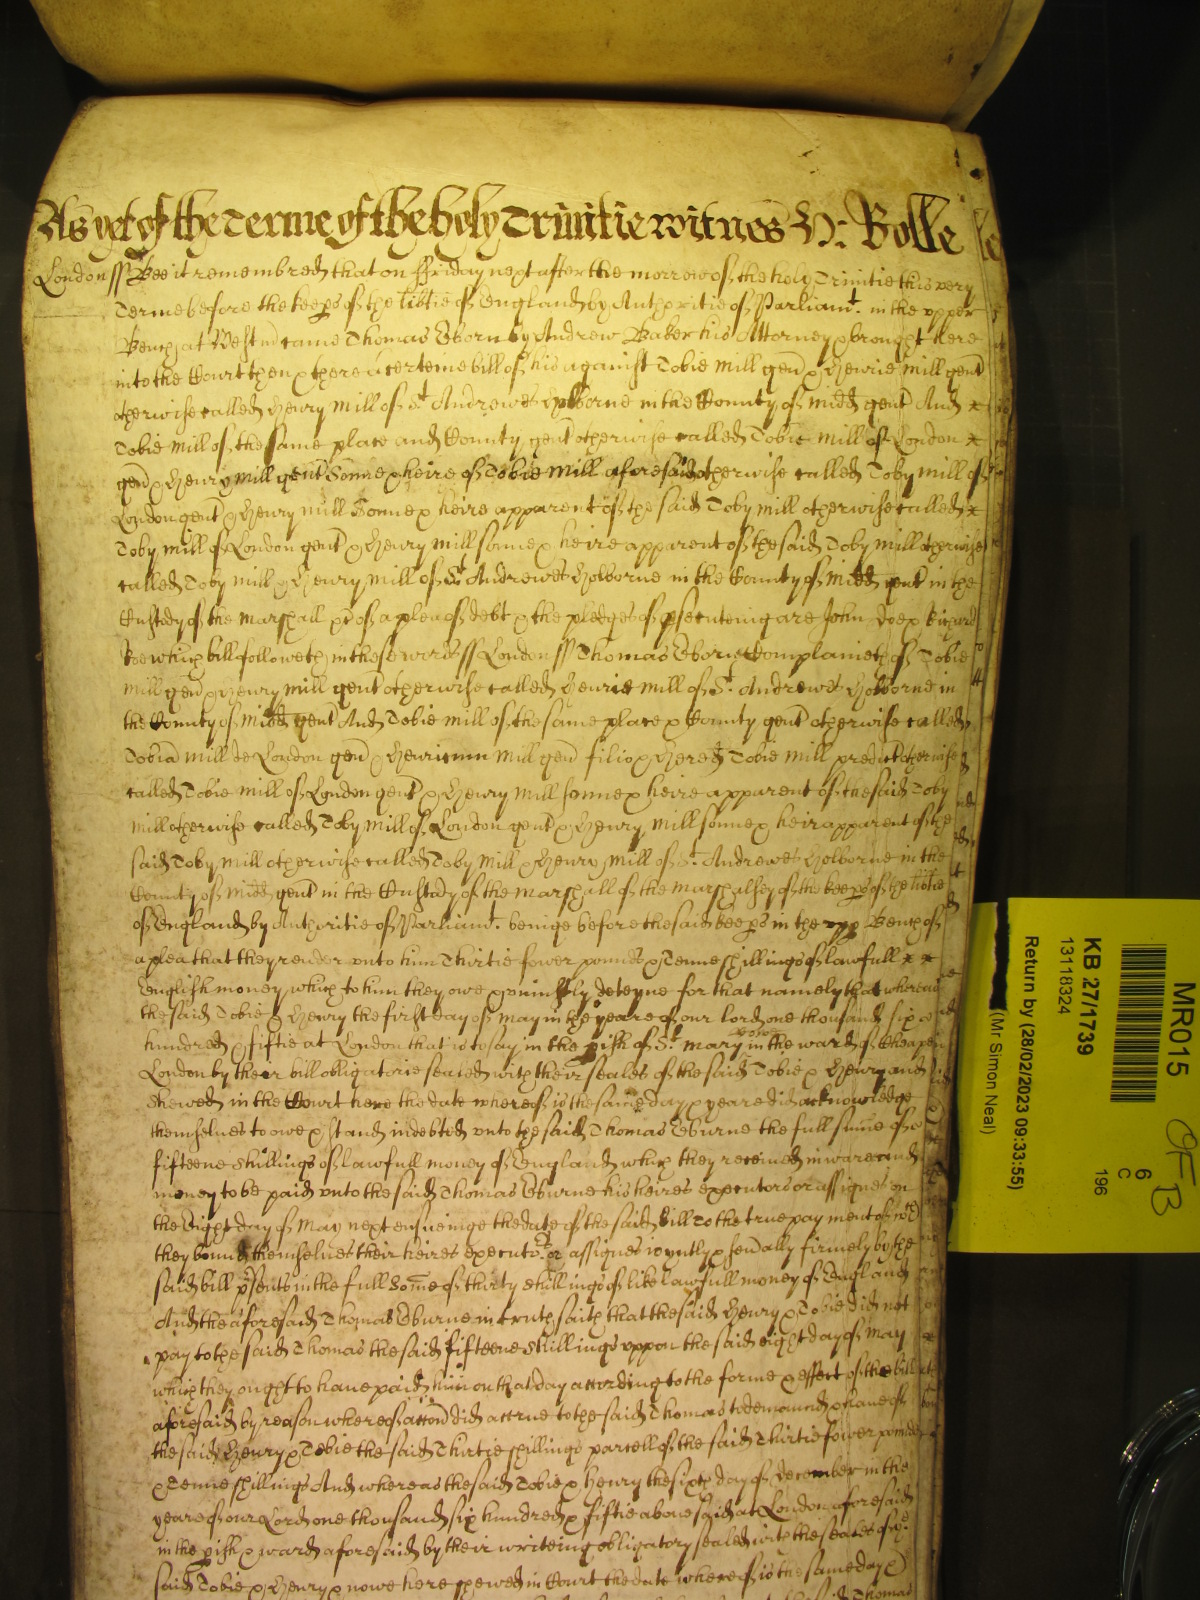 As yet of the Terme of the holy Trinitie witnes H: Rolle
London ss Bee it remembred that on Friday next after the morrow of the holy Trinitie this very
Terme before the keeps of the libtie of England by Authoritie of Parliamt. in the upper
Bench at Westm came Thomas Eborn by Andrew Baker his Attorney & brought here
into the Court then & there a certeine bill of his against Tobie Mill gent & Henrie Mill gent
otherwise called Henry Mill of St Andrewes Holborne in the County of Midd gent And
Tobie Mill of the same place and County gent otherwise called Tobie Mill of London
gent & Henry Mill gent Sonne & heire of Tobie Mill aforesaid otherwise called Toby Mill of
London gent & Henry Mill Sonne & heire apparent of the said Toby Mill otherwise called
Toby Mill of London gent & Henry Mill sonne & heire apparent of the said Toby Mill otherwise
called Toby Mill & Henry Mill of St Andrewes Holborne in the County of Midd gent in the
Custody of the Marshall &c of a plea of debt & the pledges of psecuteing are John Doe & Richard
Roe which bill followeth in these words ss London ss Thomas Eborne Complaineth of Tobie
Mill gent & Henry Mill gent otherwise called Henrie Mill of St. Andrewes Holborne in
the County of Midd gent And Tobie Mill of the same place & County gent otherwise called
Tobia Mill de London gen & Henricum Mill gen filio & hered Tobie Mill predict otherwise
called Tobie Mill of London gent & Henry Mill sonne & heire apparent of the said Toby
Mill otherwise called Toby Mill of London gent & Henry Mill sonne & heir apparent of the
said Toby Mill otherwise called Toby Mill & Henry Mill of St. Andrewes Holborne in the
County of Midd gent in the Custody of the Marshall of the Marshalsey of the keeps of the libtie
of England by Authoritie of Parliamt. beinge before the said keeps in the upp Bench of
a plea that they render unto him Thirtie fower pounds & Tenne shillings of lawfull
English money which to him they owe & uniustly deteyne for that namely that whereas
the said Tobie & Henry the first day of May in the yeare of our lord one thousand six
hundred & fiftie at London that is to say in the pish of St. Mary in the ward of Cheape
London by their bill obligatorie sealed with their seales of the said Tobie & Henry and
shewed in the Court here the date whereof is the same day & yeare did acknowledge
themselves to owe & stand indebted unto the said Thomas Eburne the full sume of
fifteene shillings of lawfull money of England which they received in ware and
money to be paid unto the said Thomas Eburne his heires executors or assignes on
the Eight day of May next ensueinge the date of the said Bill To the true payment of wch
they bound themselves their heires executors or assignes ioyntly & sevally firmely by the
said bill psents in the full Some of thirty shillings of like lawfull money of England
And the aforesaid Thomas Eburne in truth saith that the said Henry & Tobie did not
pay to the said Thomas the said fifteene shillings uppon the said eight day of May
which they ought to have paid him on that day according to the forme & effect of the bill
aforesaid by reason whereof accon did accrue to the said Thomas to demand & have of
the said Henry & Tobie the said Thirtie shillings parcell of the said Thirtie fower pounds
& Tenne shillings And whereas the said Tobie & Henry the sixth day of December in the
yeare of our Lord one thousand six hundred & fiftie abovesaid at London aforesaid
in the pish & ward aforesaid by their writeing obligatory sealed with the seales of
said Tobie & Henry & nowe here shewed in Court the date whereof is the same day &
MR015
KB 27/1739
13118324
Return by (28/02/2023 09:33:55)
(Mr Simon Neal)
6
C
196
OFB